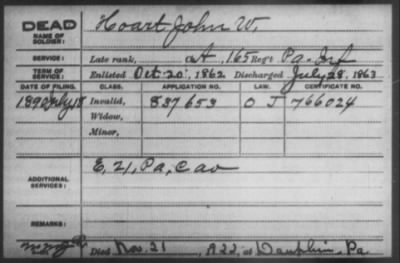 DEAD
NAME OF SOLDIER: Hoart, John W.
SERVICE: Late rank, A, 165 Reg't Pa. Inf
TERM OF SERVICE: Enlisted Oct 20, 1862 Discharged July 28, 1863
DATE OF FILING. CLASS. APPLICATION NO. LAW. CERTIFICATE NO.
1890 July 18 Invalid, 837653 O J 766024
Widow,
Minor,
ADDITIONAL SERVICES: E, 21, Pa, Cav
REMARKS:
Died Nov. 21, 1922, at Dauphin, Pa